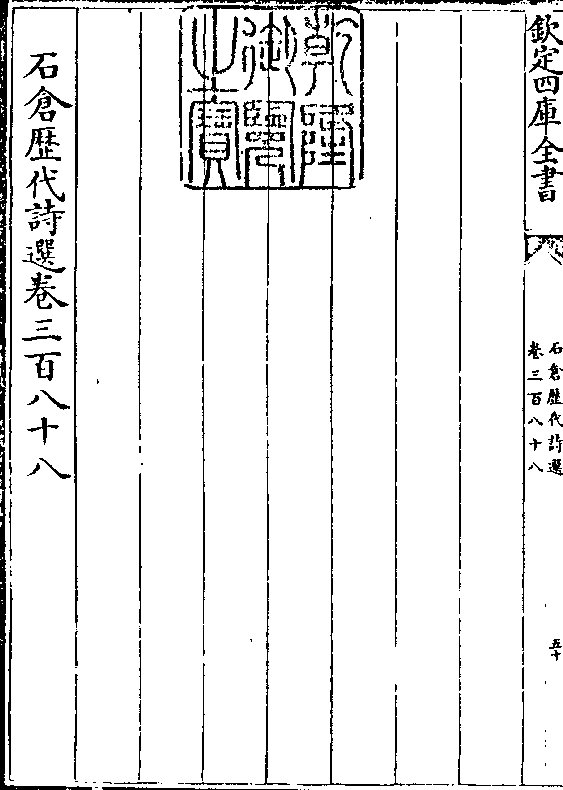 欽定四庫全書
石倉歷代詩選
卷三百八十八
五十
乾隆御覽之寶
石倉歷代詩選卷三百八十八